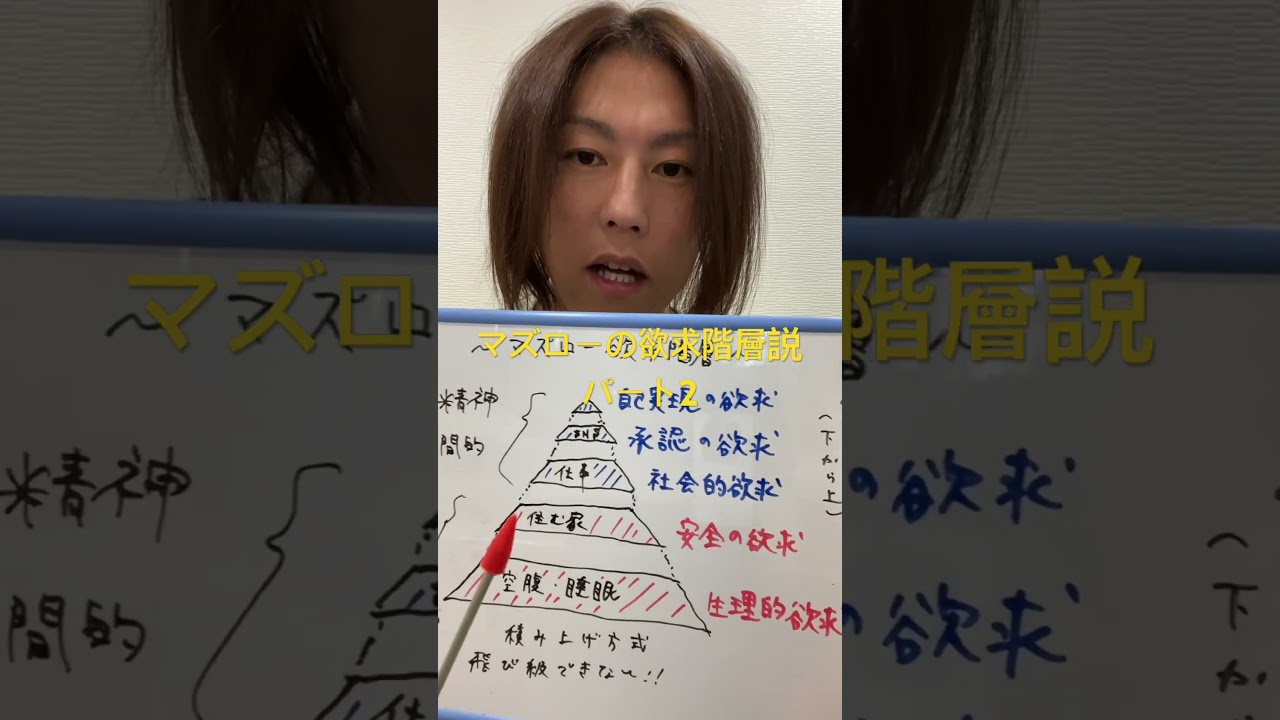 マズローの欲求階層説
パート2
精神 自己実現の欲求
間的 承認の欲求
仕事 社会的欲求
住む家 安全の欲求
空腹・睡眠 生理的欲求
積み上げ方式
飛び級できない!!
(下から上)